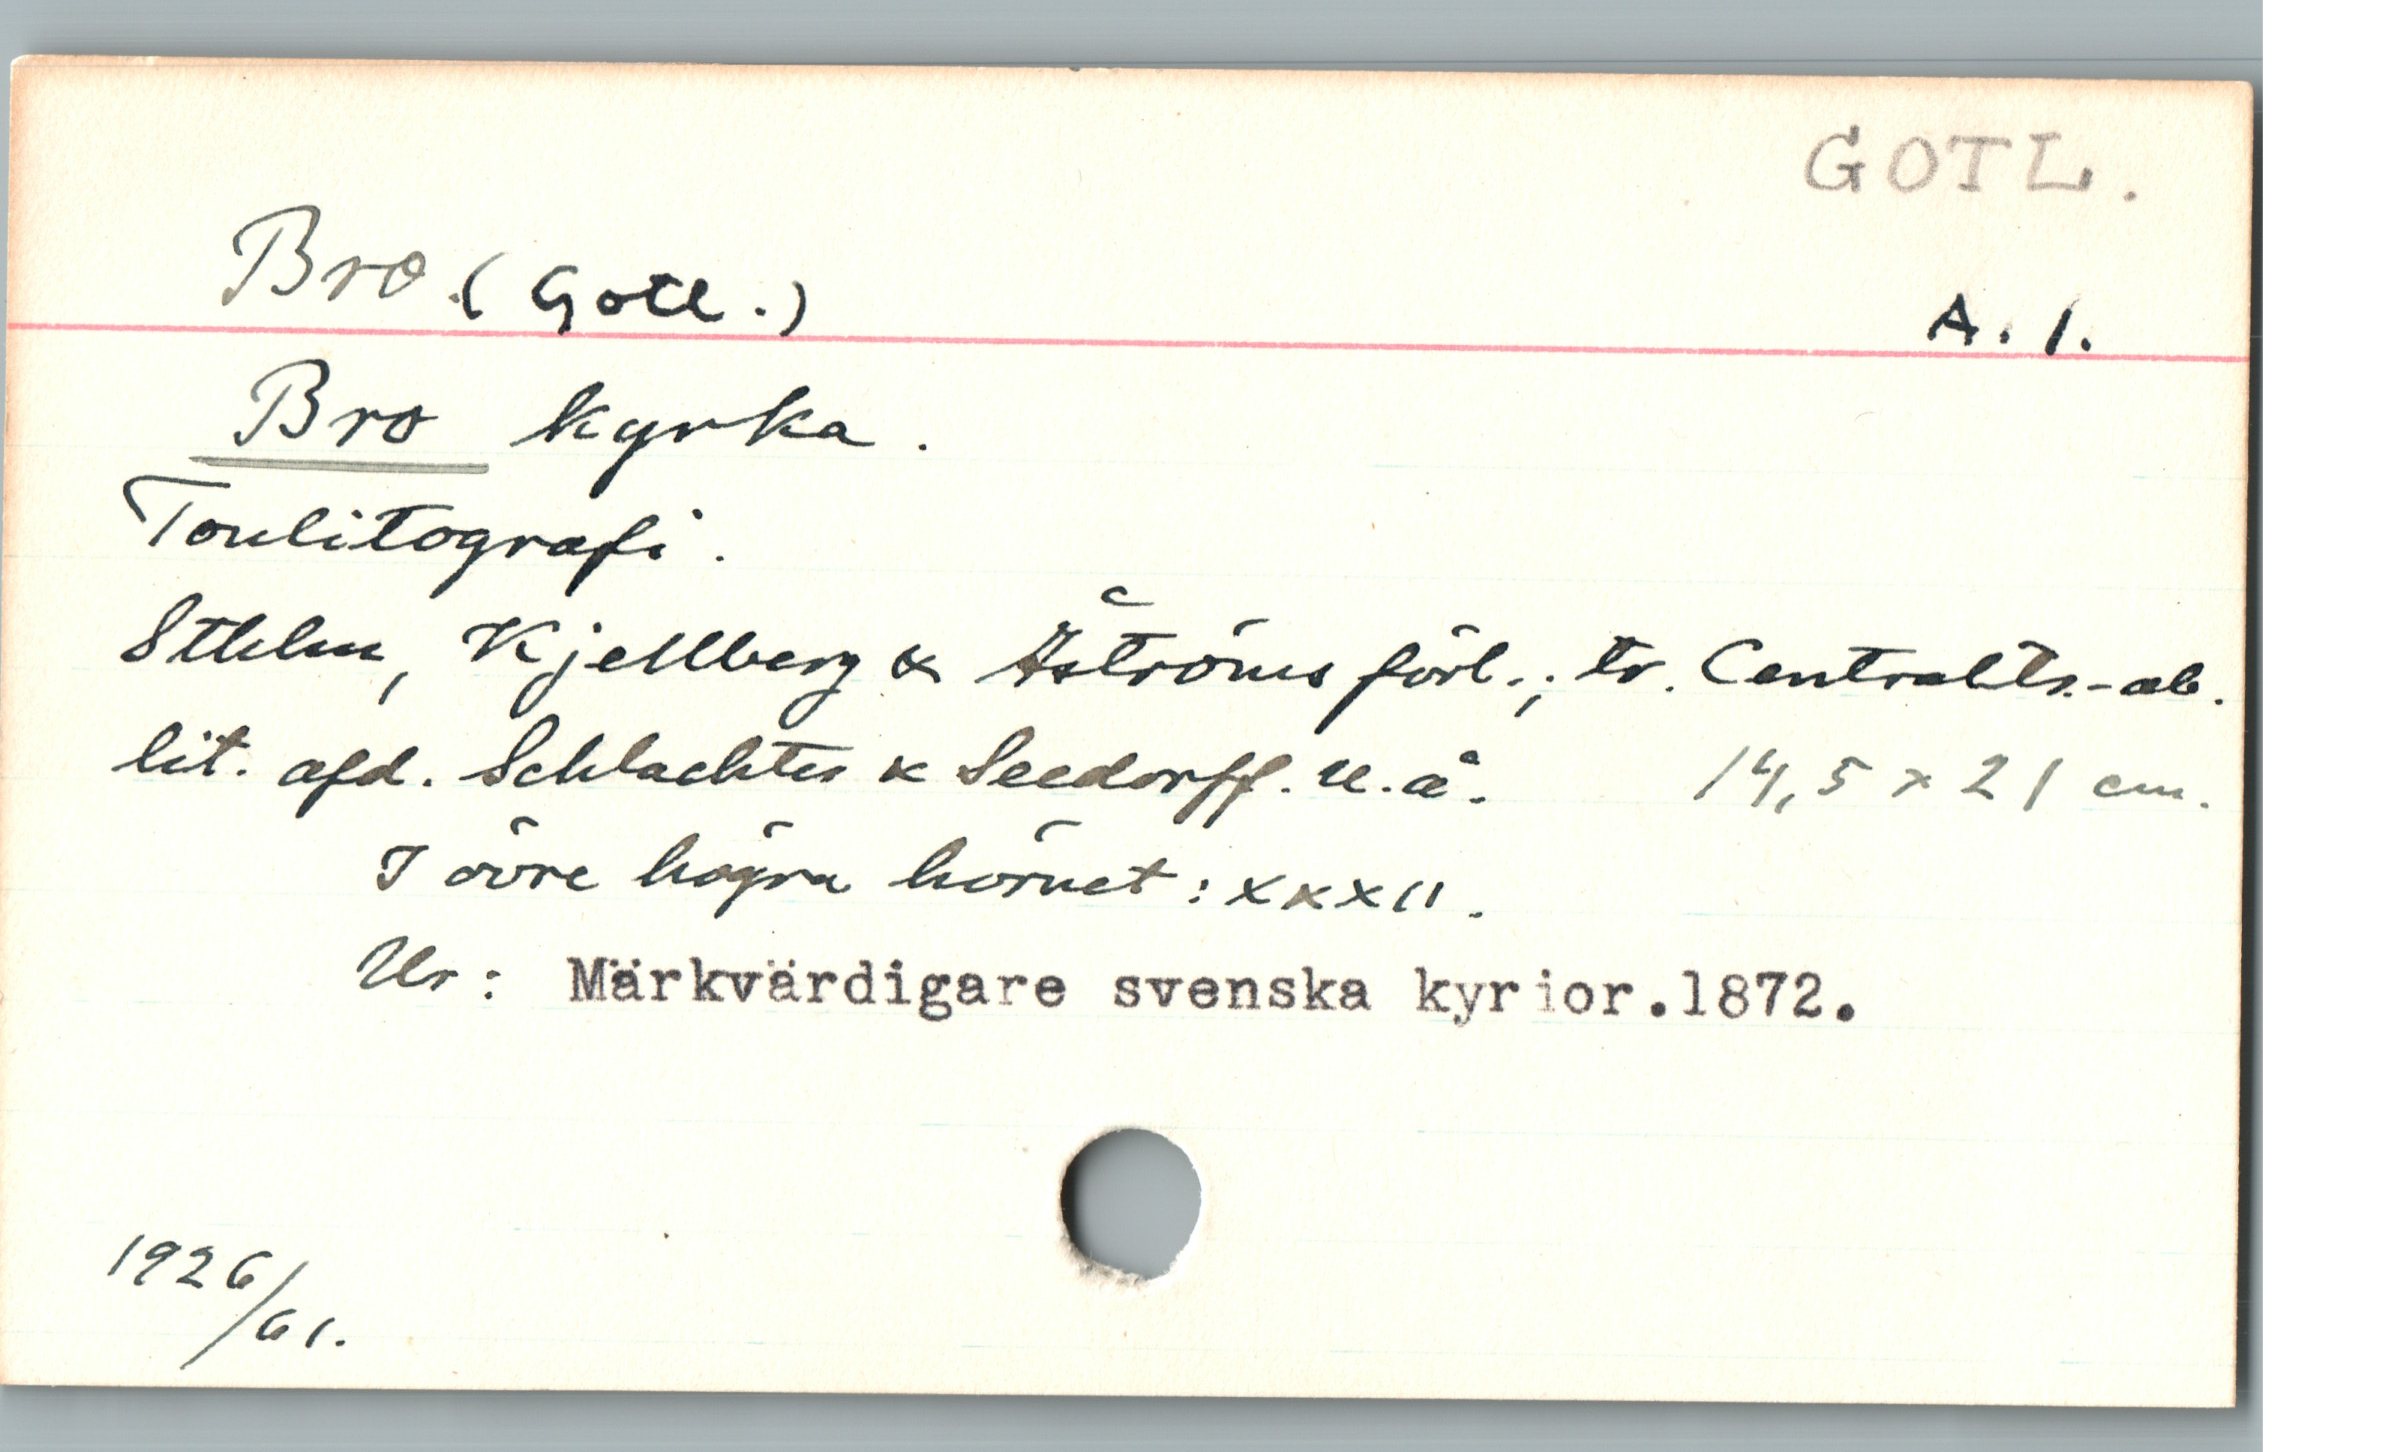 GOTL.
Bro. (Gotl.)
A. 1.
Bro kyrka.
Tonlitografi.
Sthlm, Kjellberg & Åströms förl.; tr. Centraltr.-ab.
lit. afd. Schlachter & Seedorff. U.å. 14,5 x 21 cm.
I övre högra hörnet: XXXII.
Ur: Märkvärdigare svenska kyrior.1872.
1926/61.